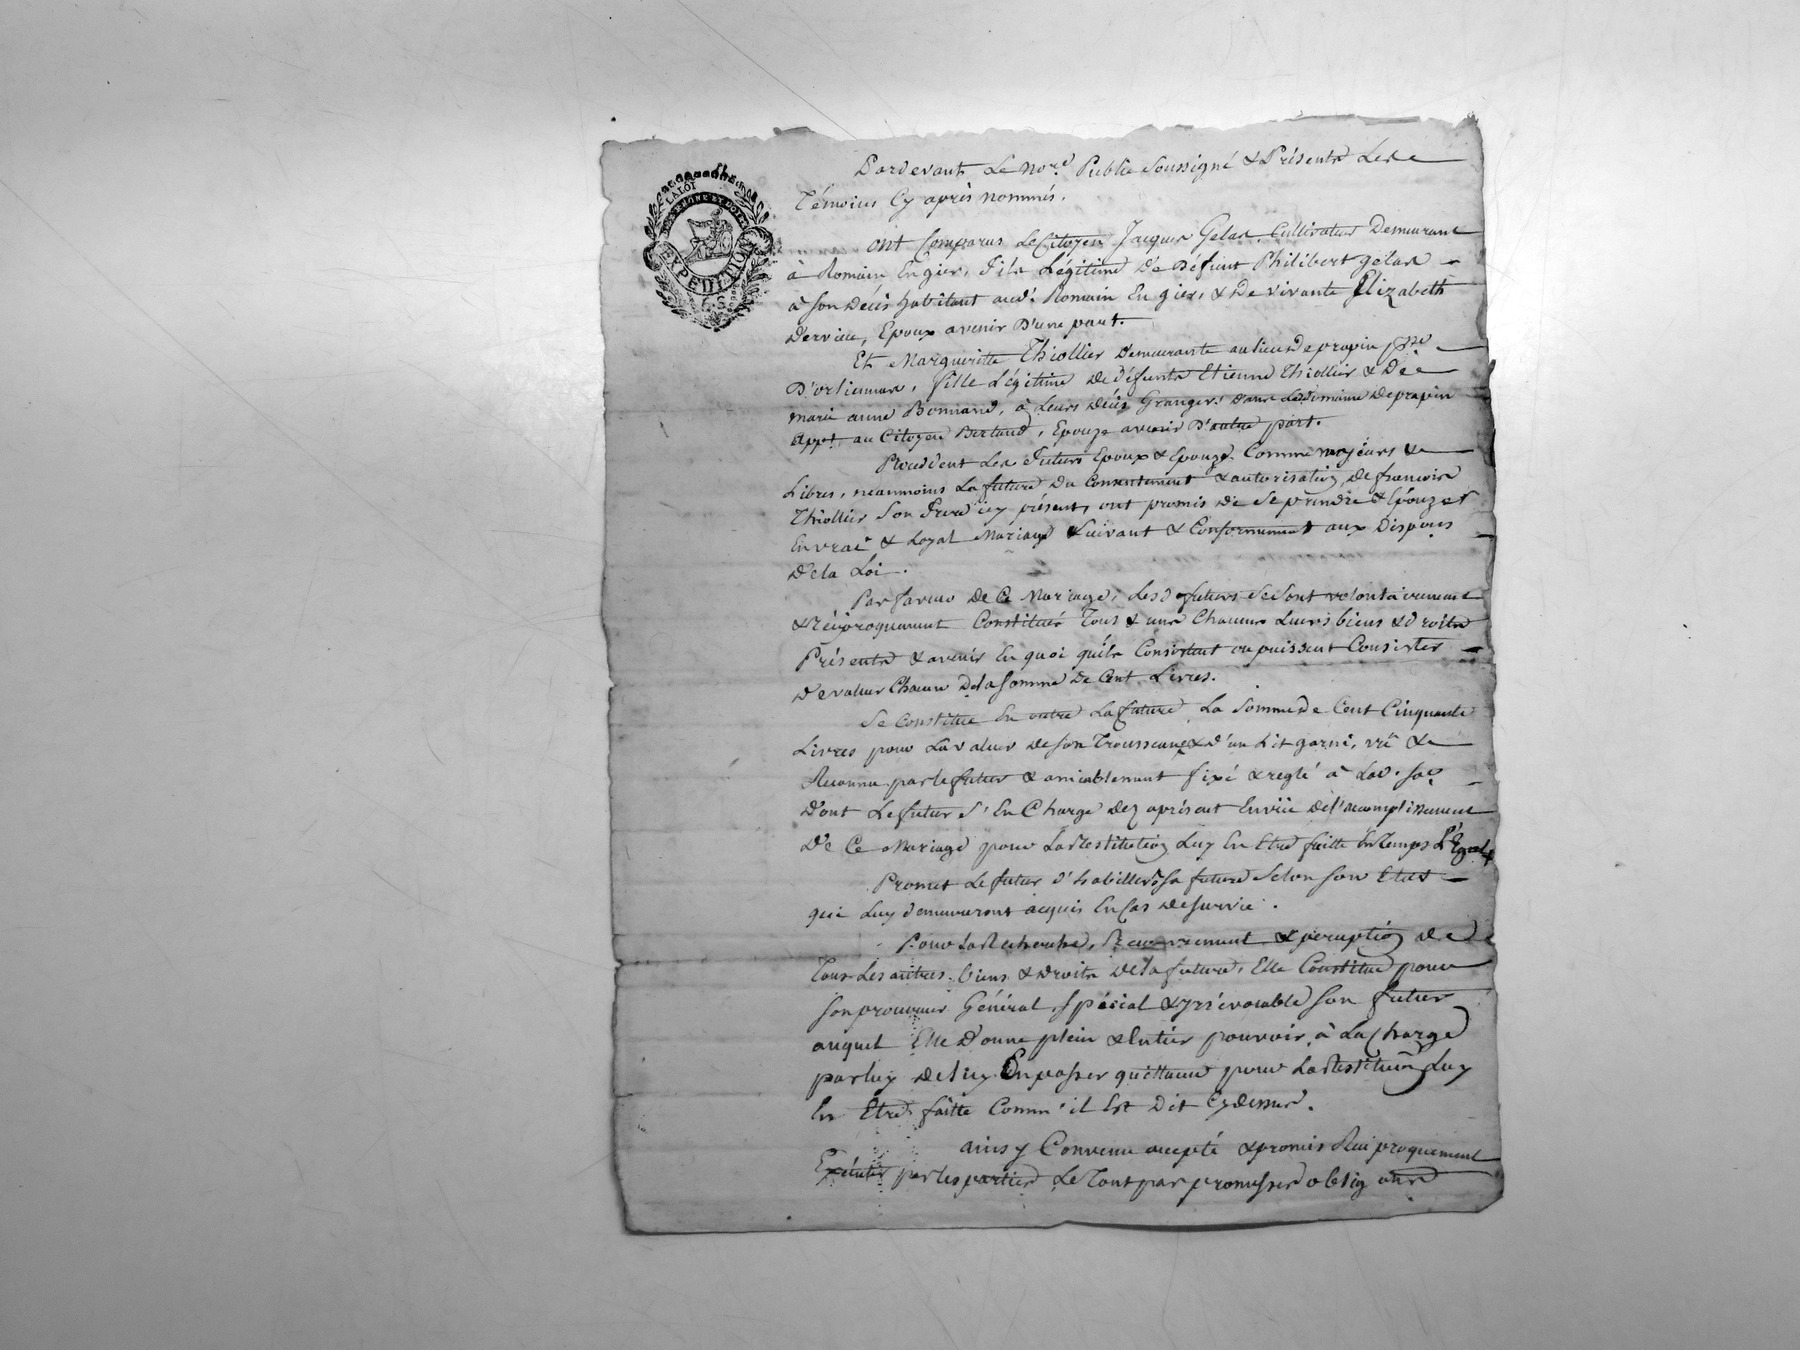 LA LOI
RHONE ET LOIRE
EXPEDITION
Pardevant Le Nore. Public Soussigné & Présents Les
Témoins Cy après nommés.
ont Comparus Le Citoyen Jacques Gelas, Cultivateur Demeurant
à Romain En gier, fils Légitime De Défunt Philibert gélas
à Son Décès habitant aud. Romain En gier, & De vivante Elizabeth
Dervieu, Epoux avenir D'une part.
Et Margueritte Thiollier Demeurante au lieu de propin
D'orliennas, fille Légitime De défunts Etienne Thiollier & De
marie anne Bonnand, à Leurs Décès Granger. dans Le Domaine De propin
appt. au Citoyen Bertaud, Epouze avenir D'autre part.
Procedent Les Futurs Epoux & Epouze Comme majeurs &
Libres, neanmoins La future Du Consentement & autorisation De francois
Thiollier Son Frere icy présent, ont promis De Se prendre & Epouzer
En vrai & Loyal Mariage Suivant & Conformement aux Dispons
De la Loi.
Par faveur De Ce Mariage, Lesd. futurs Se Sont volontairement
& réciproquement Constitués Tous & uns Chacuns Leurs biens & droits
Présents & avenir En quoi qu'ils Consistent ou puissent Consister
De valeur Chacun De la Somme De Cent Livres.
Se Constitue En outre La future La Somme De Cent Cinquante
Livres pour La valeur De Son Trousseau & d'un Lit garni, vû &
Reconnu par le futur & amiablement fixé & reglé à Lad. Soe.
D'ont Le futur S'En Charge Dez aprésent En vüe De l'accomplissement
De Ce Mariage pour La Restitution Luy En Etre faitte En Temps & Egal
Promet Le futur d'habiller Sa future Selon Son Etat
qui Luy demeureront acquis En Cas De Survie.
Pour La Recherche, Recouvrement & perception De
Tous Les autres biens & droits De la future, Elle Constitue pour
Son procureur Général, Spécial & yrrévocable Son futur
auquel Elle Donne plein & Entier pouvoir, à La Charge
par luy De luy En passer quittance pour La Restitution Luy
En Etre faitte Comm'il Est Dit Cy dessus.
ainsy Convenu accepté & promis Reciproquement
Exécuter par les parties Le Tout par promesses oblig ons